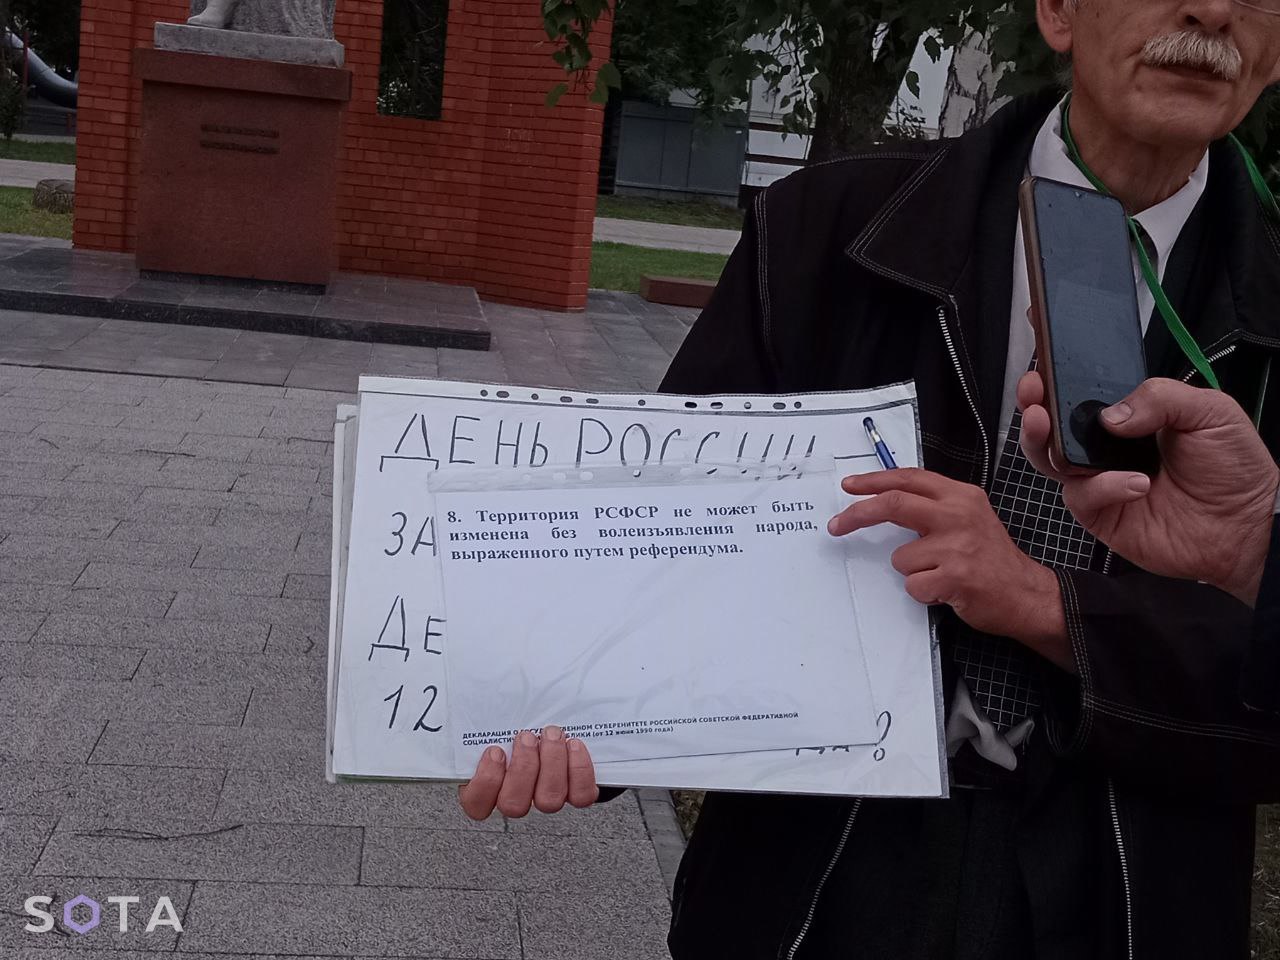 ДЕНЬ РОССИИ –
8. Территория РСФСР не может быть
изменена без волеизъявления народа,
выраженного путем референдума.
ЗА
ДЕ
12
?
ДЕКЛАРАЦИЯ О СУВЕРЕНИТЕТЕ РОССИЙСКОЙ СОВЕТСКОЙ ФЕДЕРАТИВНОЙ
(от 12 июня 1990 года)
SOTA